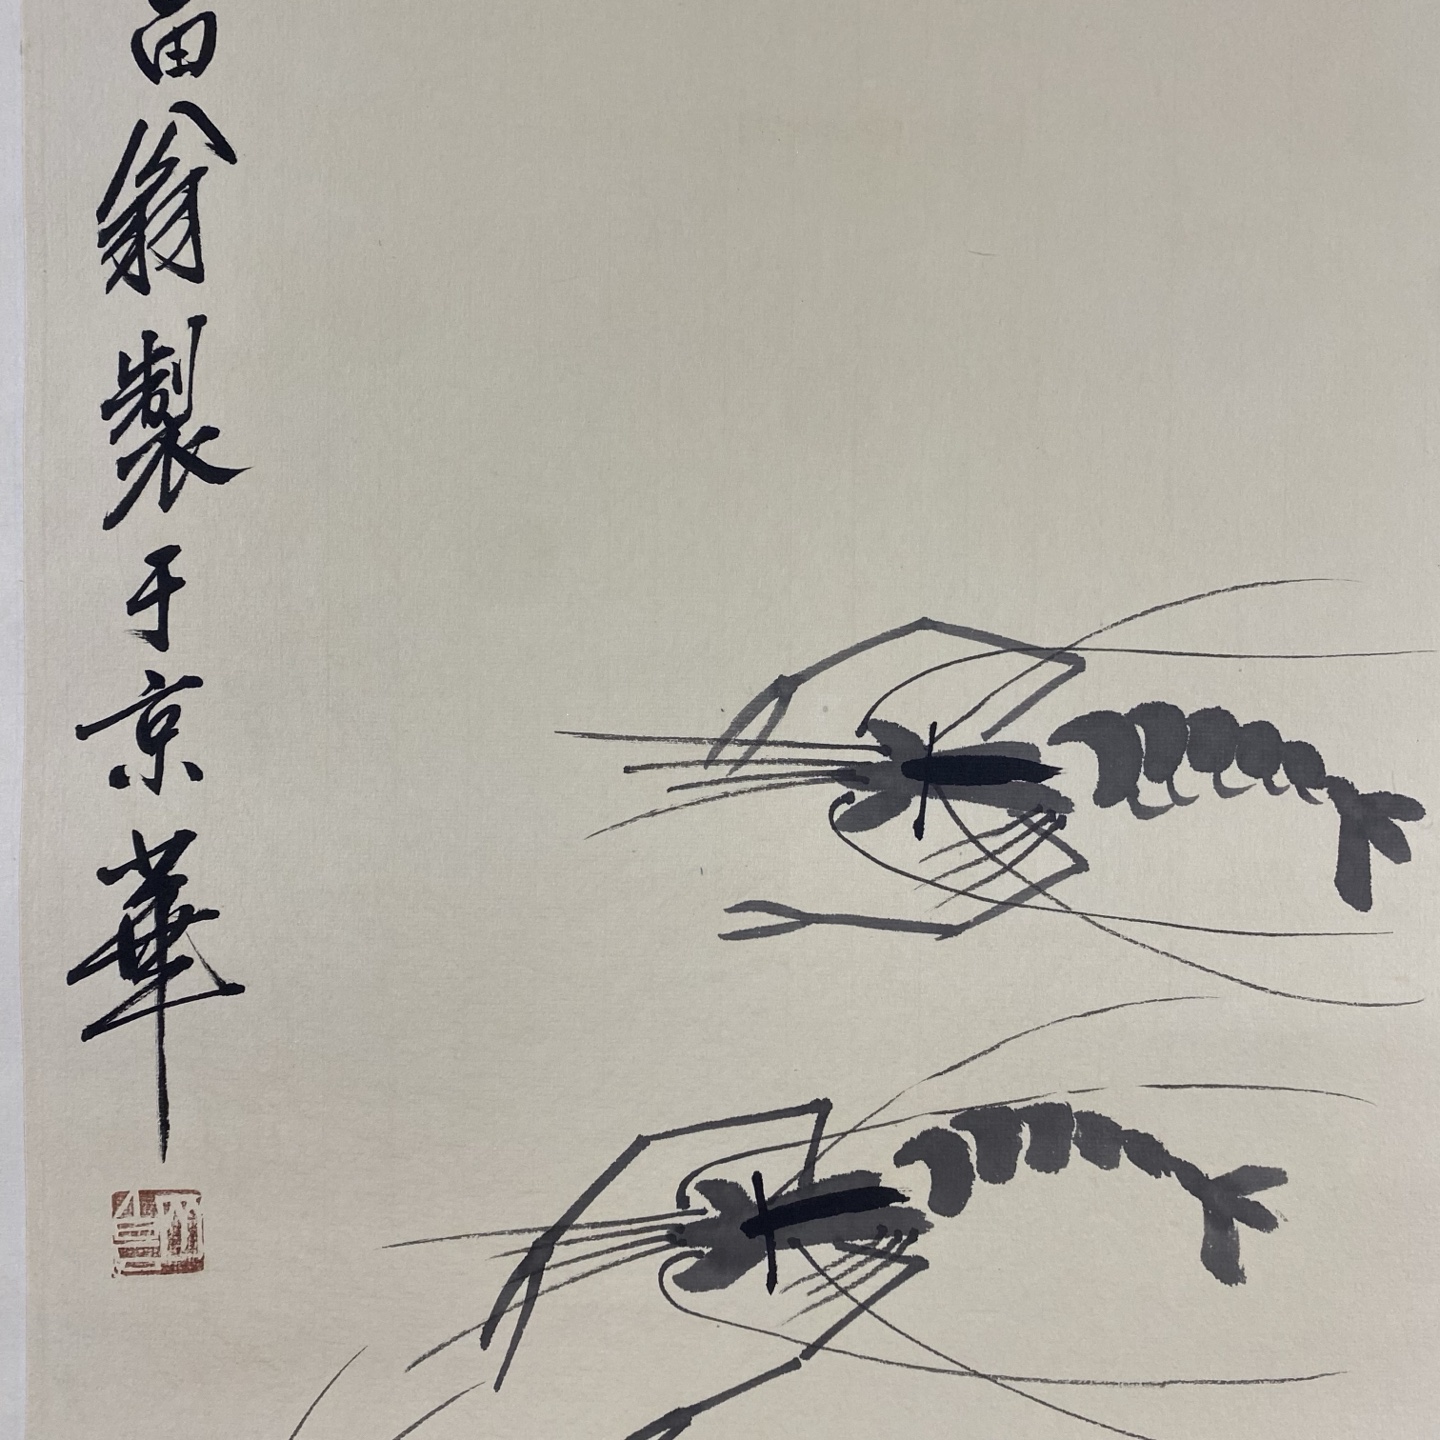 富翁製于京華